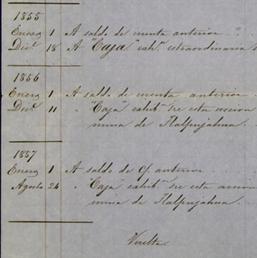 1855
Enero 1 A saldo de cuenta anterior . ? .
Dice. 18 A "Caja" exhn. extraordinaria
1856
Enero 1 A saldo de cuenta anterior .
Dice. 11 " "Caja" exhibn. sre esta accion
mina de Tlalpujahua.
1857
Enero 1 A saldo de cta. anterior . .
Agosto 24 " "Caja" exhibn. sre esta accion
mina de Tlalpujahua.
Vuelta